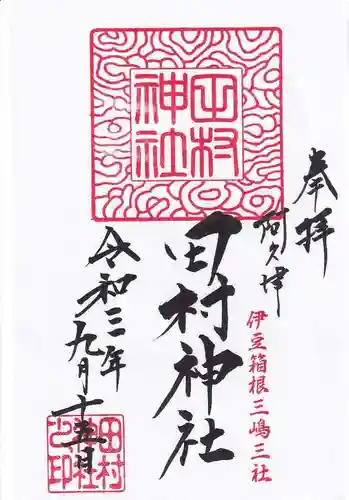 奉拝
阿久津
伊豆箱根三嶋三社
田村
神社
田村神社
令和三年
九月十五日
田村
神社
之印